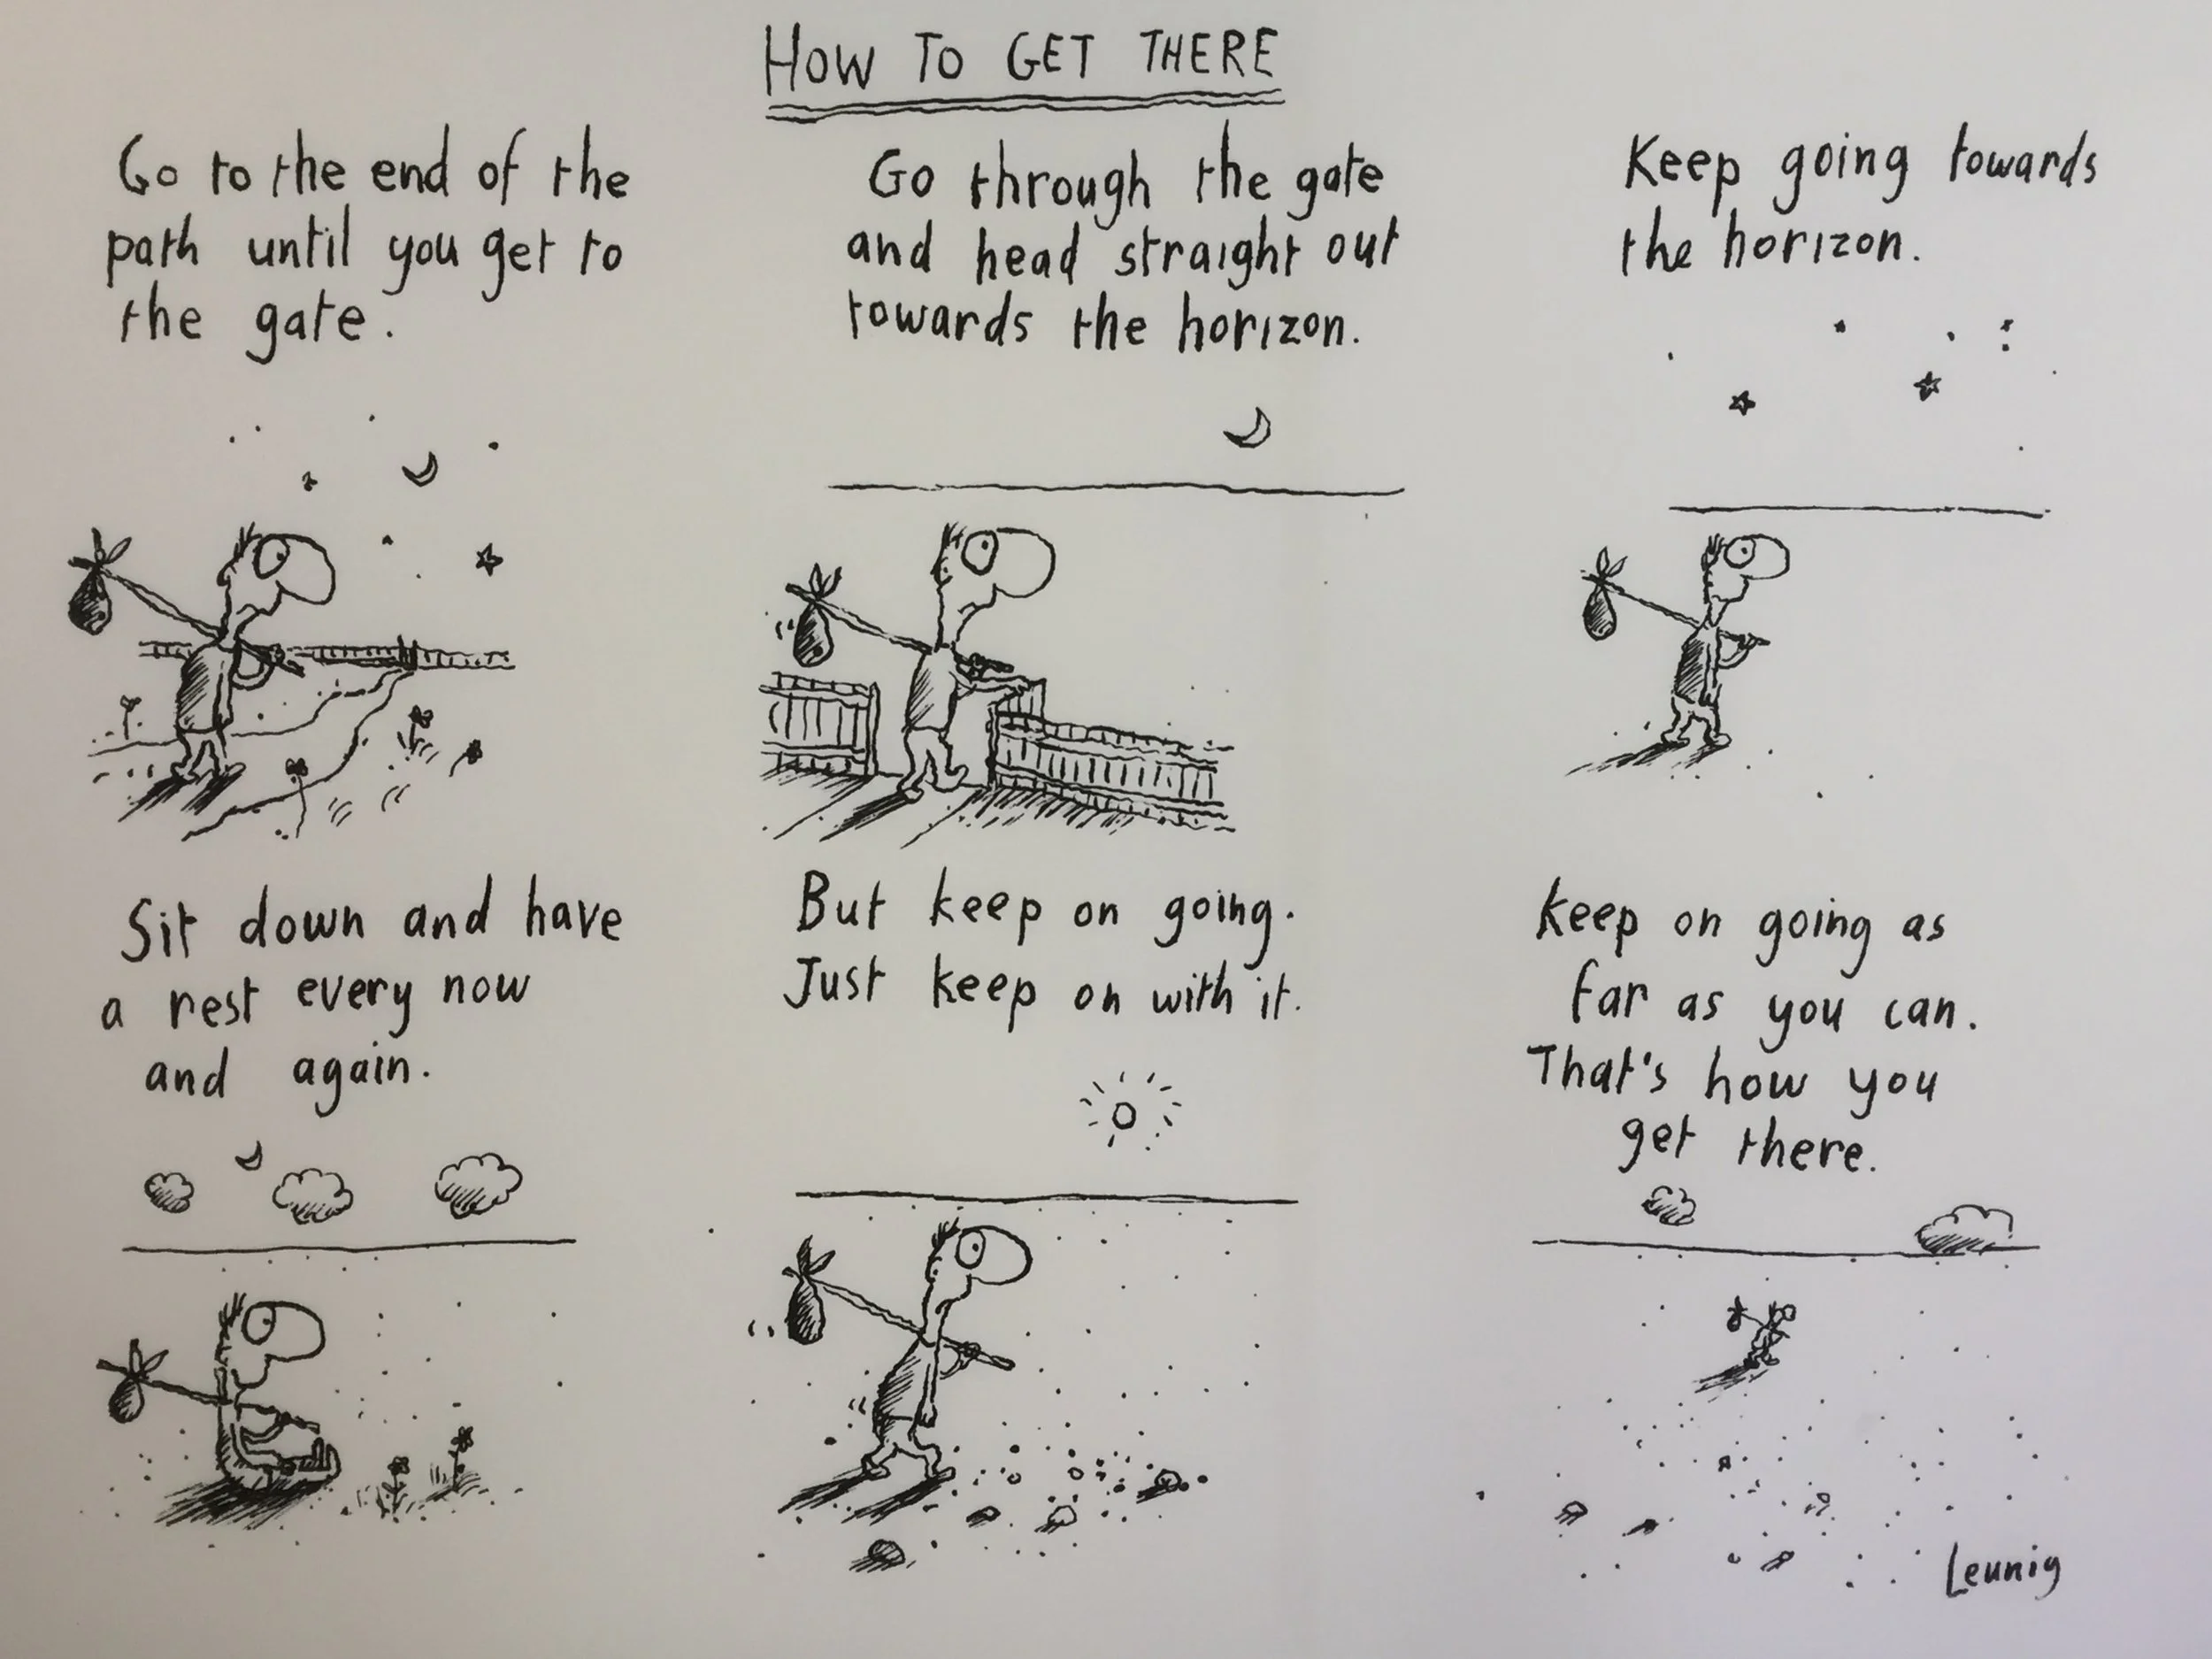 HOW TO GET THERE
Go to the end of the
path until you get to
the gate.
Go through the gate
and head straight out
towards the horizon.
Keep going towards
the horizon.
Sit down and have
a rest every now
and again.
But keep on going.
Just keep on with it.
Keep on going as
far as you can.
That's how you
get there.
Leunig